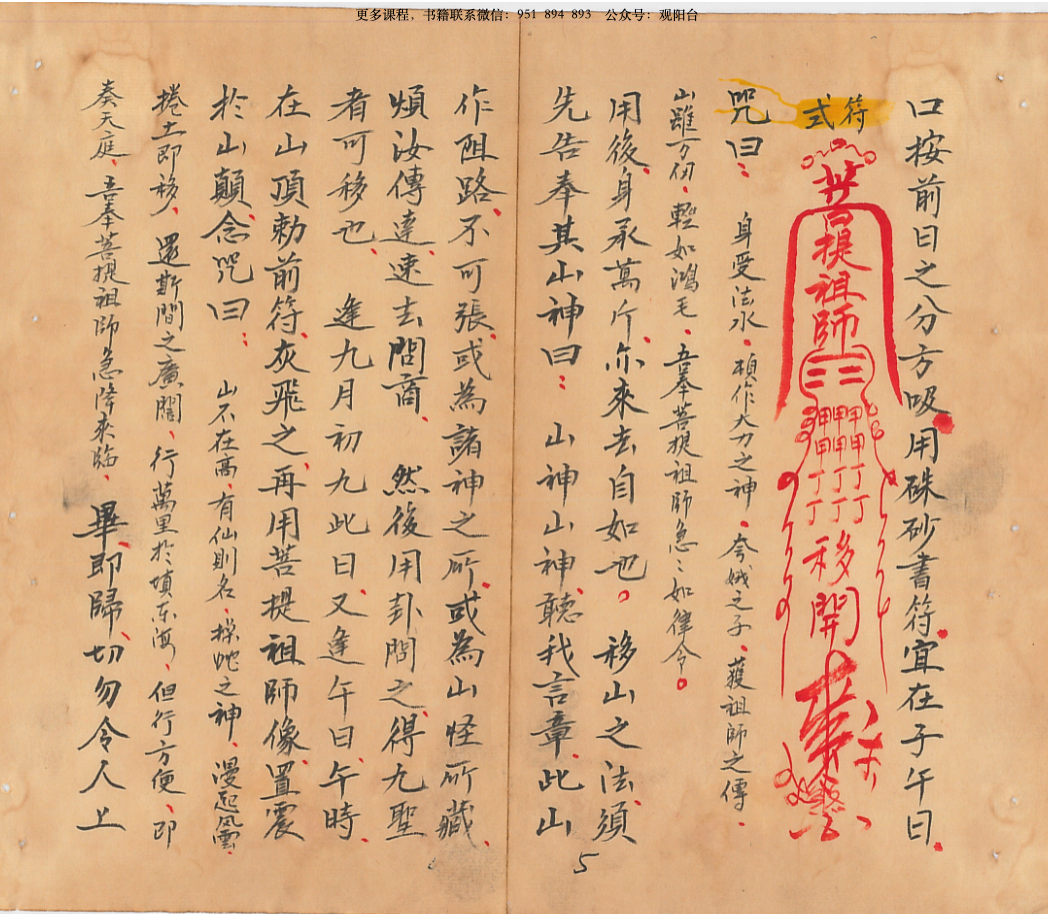 更多课程，书籍联系微信：951 894 893　公众号：观阳台
口按前日之分方吸、用硃砂書符、宜在子午日、
符式
菩提祖師
甲甲甲
甲甲甲
丁丁丁
丁丁丁
移開
咒曰：身受法水、頓作大力之神、夸娥之子、獲祖師之傳、
山雖万仞、輕如鴻毛、吾奉菩提祖師急〻如律令。
用後、身承萬斤、亦來去自如也。移山之法、須
先告奉其山神曰：山神山神、聽我言章、此山
作阻路、不可張、或為諸神之所、或為山怪所藏、
煩汝傳達、速去問商、然後用卦問之、得九聖
者可移也、逢九月初九此日、又逢午日、午時、
在山頂勅前符、灰飛之、再用菩提祖師像、置震
於山顛、念咒曰：山不在高、有仙則名、操蛇之神、漫起風雲、
捲土即移、還斯間之廣闊、行萬里於填东海、但行方便、即
奏天庭、吾奉菩提祖師急降來臨、畢、即歸、切勿令人上
5